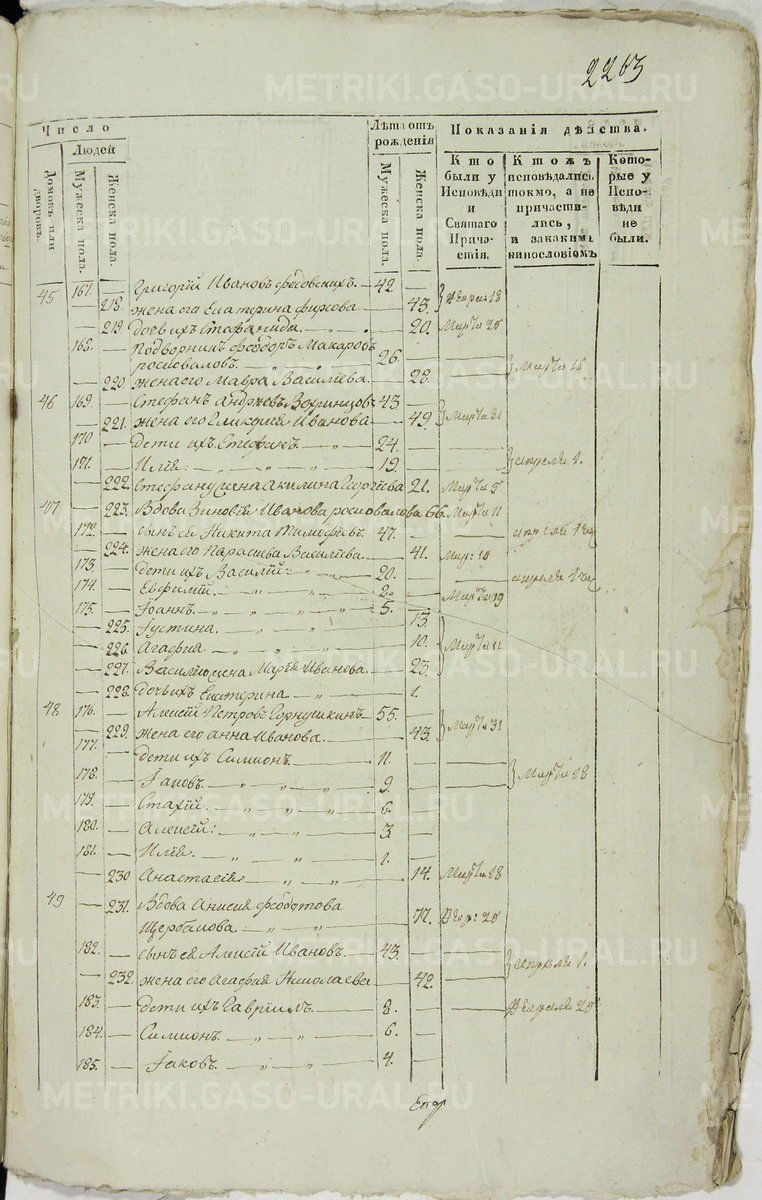 2263
Число
Людей
Домовъ или дворовъ.
Мужеска пола.
Женска пола.
Лѣта отъ рожденія
Мужеска пола.
Женска пола.
Показанія дѣйства.
Кто были у Исповѣди и Святаго Причастія.
Кто жъ исповѣдались токмо, а не причастились, и за какимъ винословіемъ
Которые у Исповѣди не были.
45 167. — Григорій Ивановъ 42. —
— 218. жена его Екатерина Фирсова — 43. 18
— 219. дочь ихъ Стефанида — 20. Марта 25
168. — Подворникъ Феодоръ Макаровъ
26. — Марта
— 220. жена его Мавра Василіева — 28.
46 169. — Стефанъ Андреевъ 43 —
— 221. жена его Гликерія Иванова — 49. Марта 21
170 — дети ихъ Стефанъ 24. —
171. — Илія 19. — апреля 1.
— 222. Стефану жена Акилина Георгіева 21. Марта 5
47 — 223. Вдова Зиновія Иванова 66. Марта 11
172. — сынъ ея Никита Тимофѣевъ 47. —
— 224. жена его Параскева Василіева — 41.
173. — дети ихъ Василій 20. —
174. — Евфимій 2. — Марта 19
175. — Іоаннъ 5. —
— 225. Іустина — 13.
— 226. Агафія — 10. Марта 11
— 227. Василію жена Марія Иванова — 23.
— 228. дочь ихъ Екатерина — 1.
48 176. — Алексій Петровъ 55. —
— 229. жена его Анна Иванова — 43. Марта 31
177. — дети ихъ Симионъ 11. —
178. — Іаковъ 9. — Марта 28
179. — Стахій 6. —
180. — Алексій 3. —
181. — Илія 1. —
— 230 Анастасія — 14. Марта 28
49 — 231. Вдова Анисія Феодотова
Щербакова — 77.
182. — сынъ ея Алексій Ивановъ 43. —
апреля 1.
— 232. жена его Агафія Николаева — 42.
183. — дети ихъ Гавріилъ 8. —
184. — Симионъ 6. —
185. — Іаковъ 4. —
METRIKI.GASO-URAL.RU